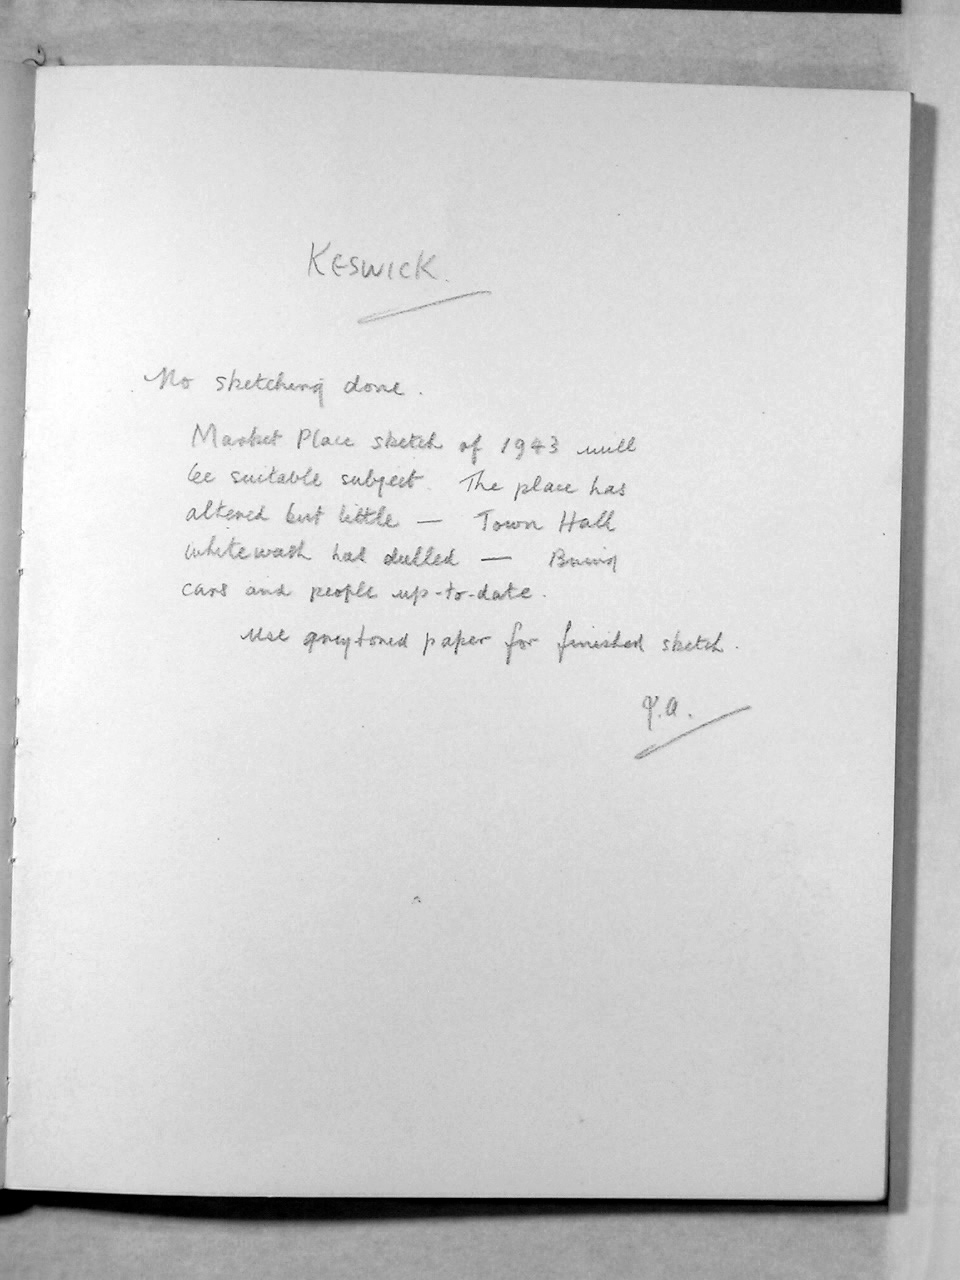 KESWICK.
No sketching done.
Market Place sketch of 1943 will
be suitable subject. The place has
altered but little — Town Hall
whitewash has dulled — Bring
cars and people up-to-date.
Use greytoned paper for finished sketch.